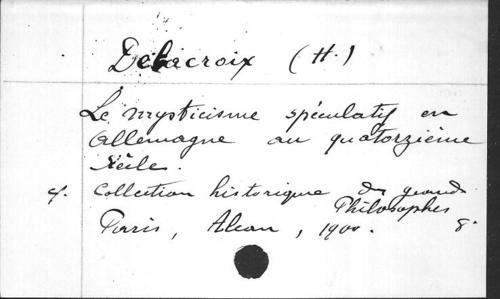 Delacroix (H.)
Le mysticisme spéculatif en
Allemagne au quatorzième
siècle.
cf. Collection historique des grands
Philosophes
Paris, Alcan, 1900. 8.